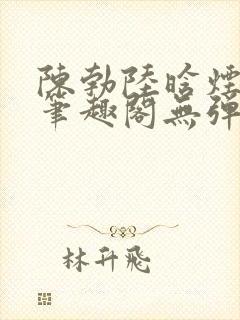 陳勃陸晗煙
筆趣閣無彈
林升飛